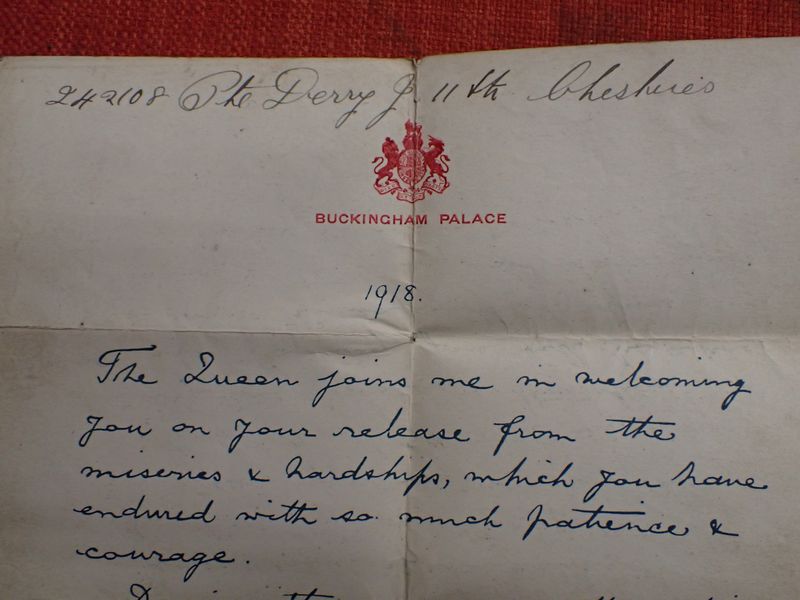 242108 Pte Derry J 11th Cheshires
BUCKINGHAM PALACE
1918.
The Queen joins me in welcoming
you on your release from the
miseries & hardships, which you have
endured with so much patience &
courage.